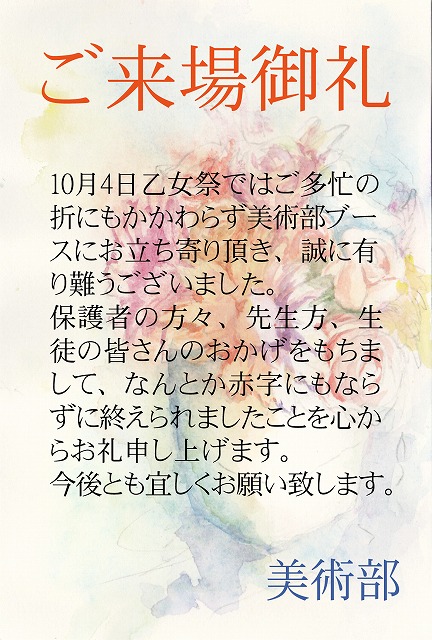 ご来場御礼
10月4日乙女祭ではご多忙の
折にもかかわらず美術部ブー
スにお立ち寄り頂き、誠に有
り難うございました。
保護者の方々、先生方、生
徒の皆さんのおかげをもちま
して、なんとか赤字にもなら
ずに終えられましたことを心か
らお礼申し上げます。
今後とも宜しくお願い致します。
美術部